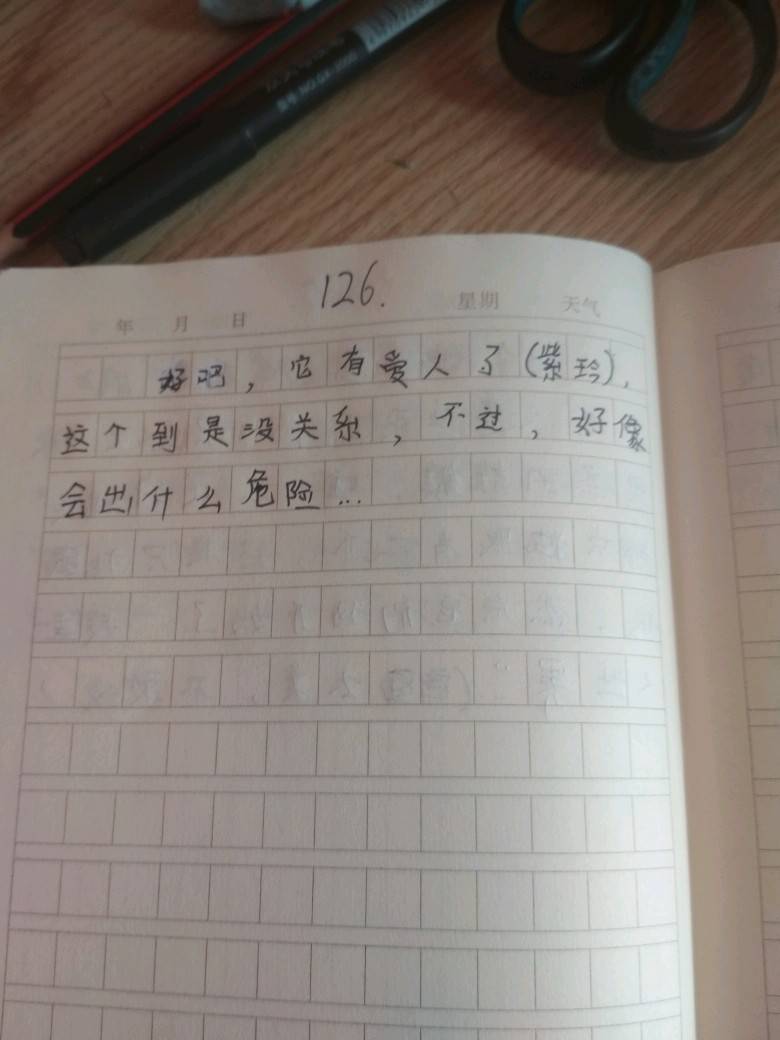 126.
年 月 日 星期 天气
好吧，它有爱人了（紫玲），
这个到是没关系，不过，好像
会出什么危险...